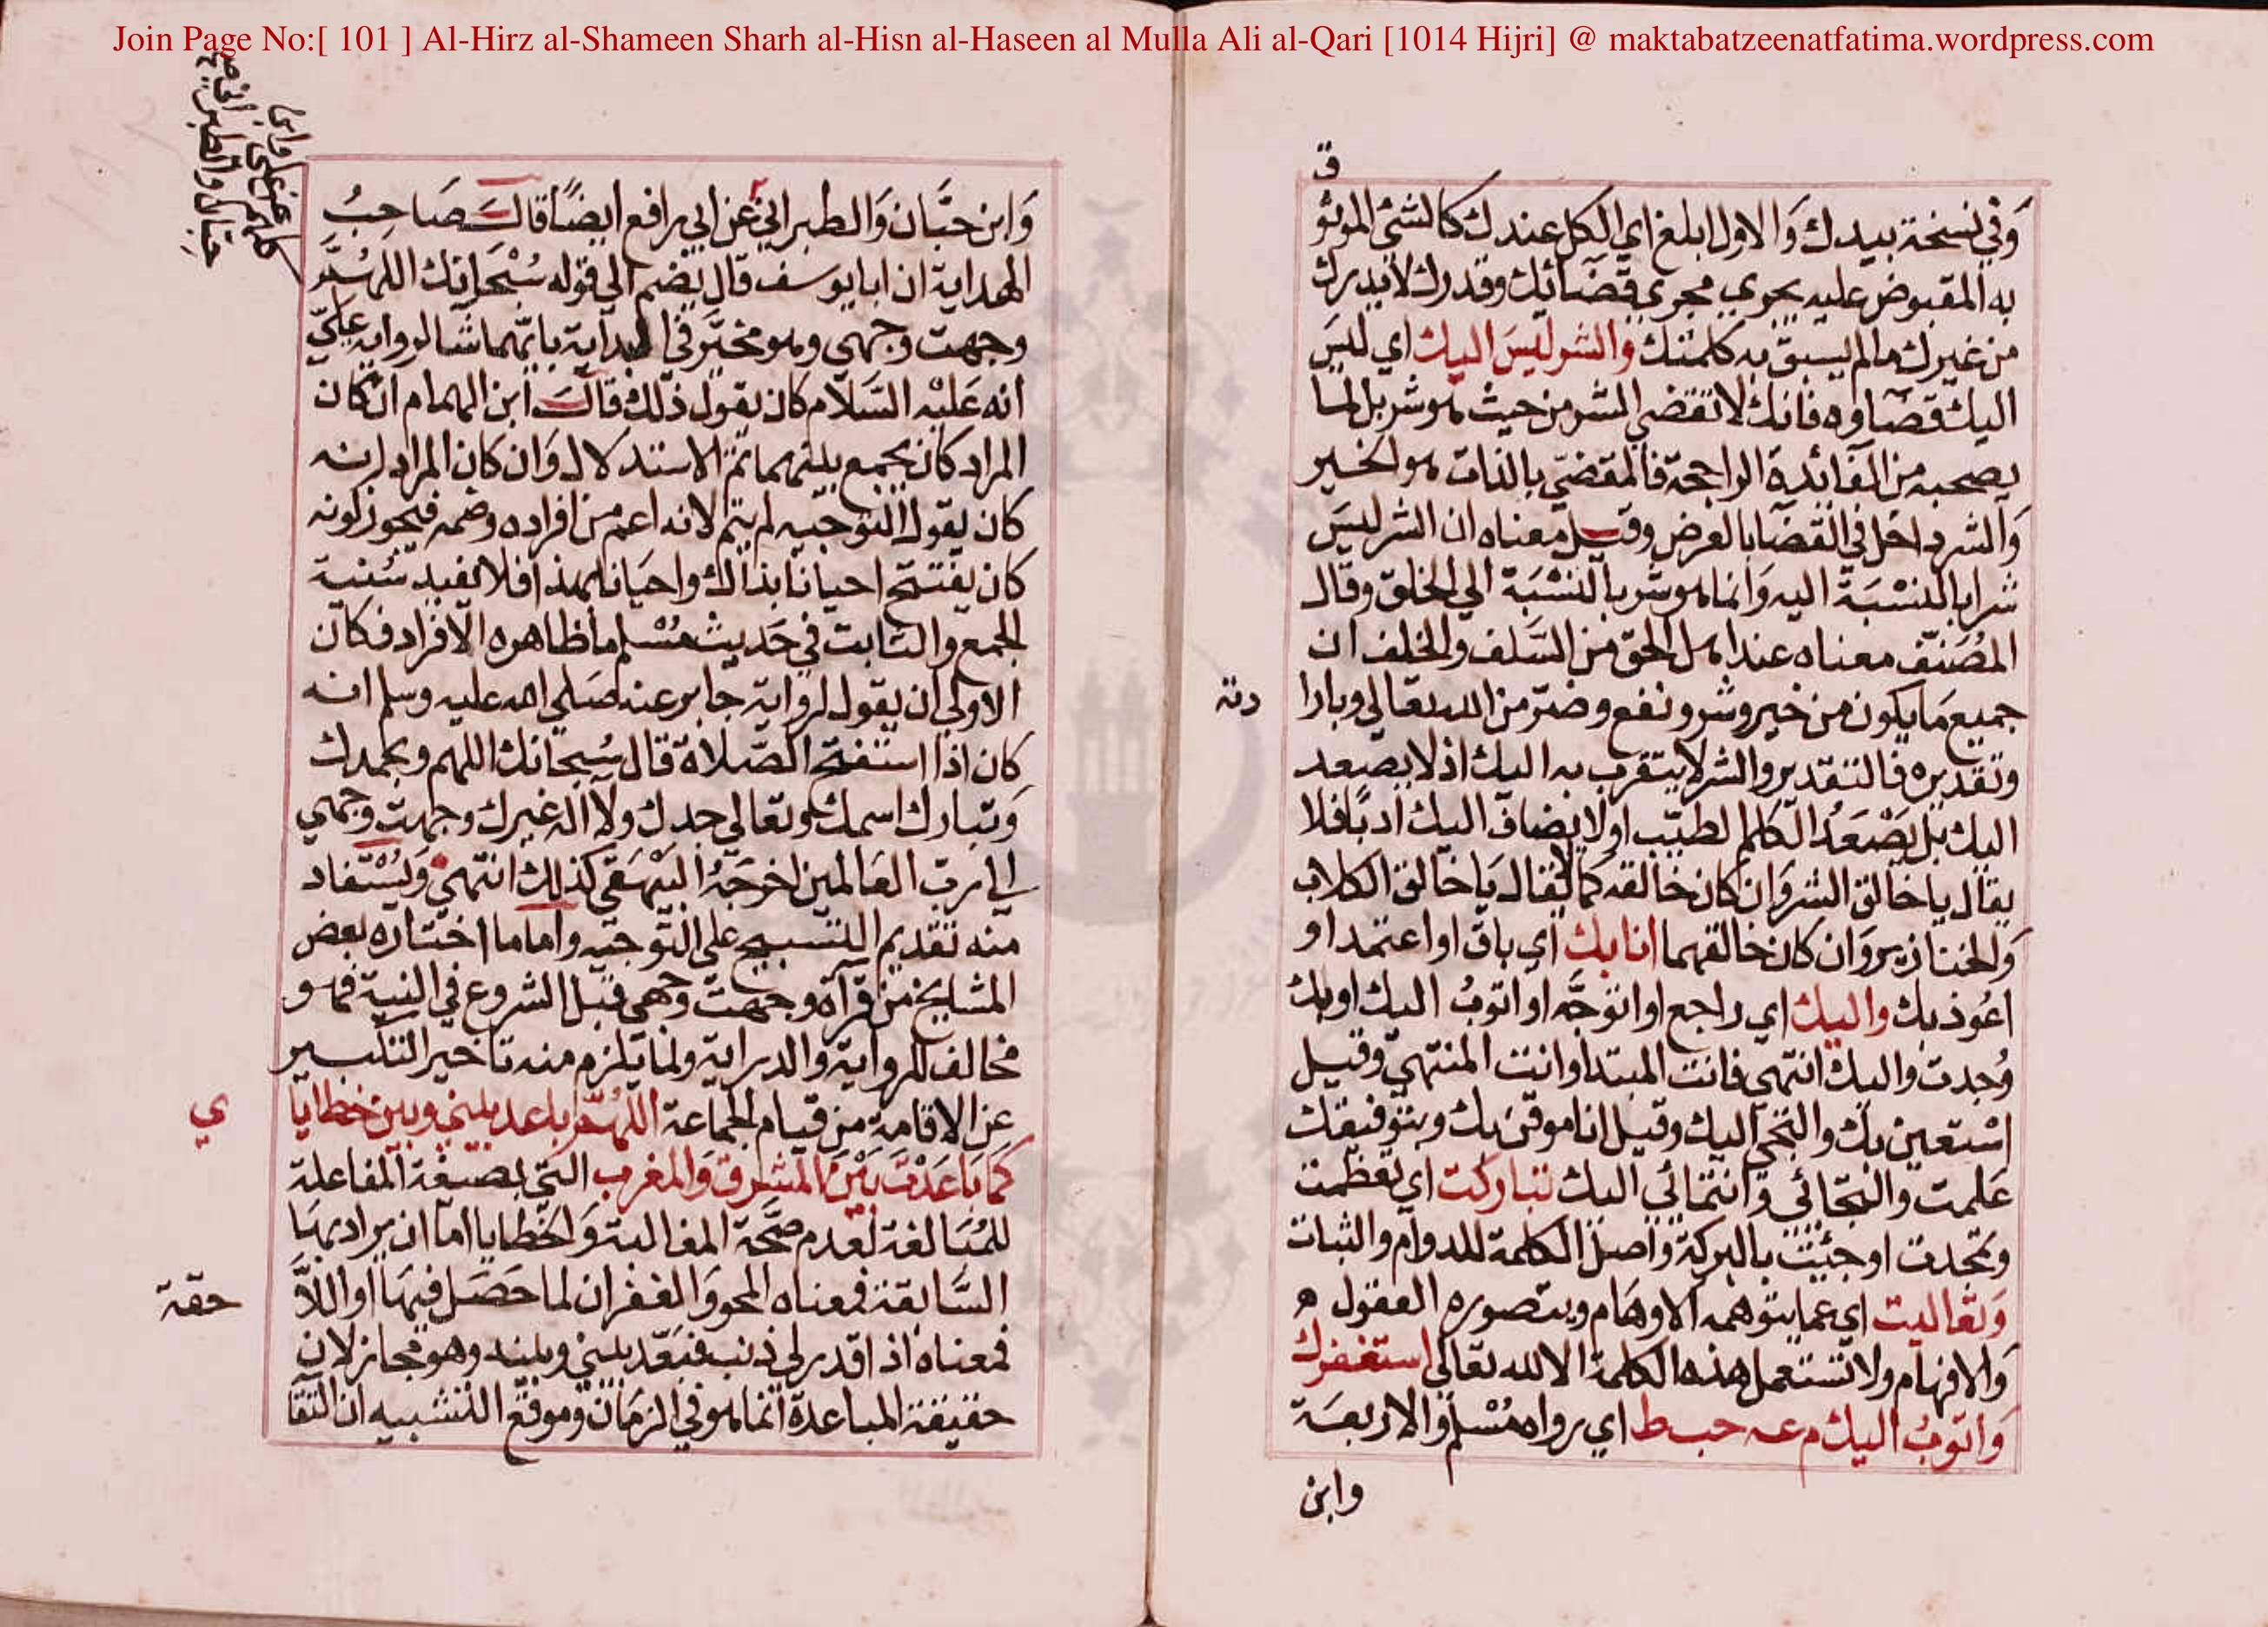 Join Page No:[ 101 ] Al-Hirz al-Shameen Sharh al-Hisn al-Haseen al Mulla Ali al-Qari [1014 Hijri] @ maktabatzeenatfatima.wordpress.com
وَفي نسخة بيدك وَالاول ابلغ اي الكل عندك كالشئ الموثو
ق
به المقبوض عليه يجري مجري قضائك وقدرك لا يدرك
من غيرك مالم يسبق به كلمتك والشر ليسَ اليك اي ليسَ
اليك قضاوه فانك لا تقضي الشر من حيث هو شر بل لما
يصحبه من الفائدة الراجحة فالمقضي بالذات هو الخير
وَالشر داخل في القضا بالعرض وقيل معناه ان الشر ليسَ
شرا بالنسْبَة اليه وَانما هو شر بالنسْبَة الي الخلق وقال
المُصَنف معناه عند اهل الحق من السَلف والخلف ان
جميع مَا يكون من خير وشر ونفع وضر من الله تعالي وبارا
دته
وتقديره فالتقدير والشر لا يتقرب به اليك اذ لا يصعد
اليك بل يَصْعَدُ الكلم الطيب او لا يضاف اليك ادبا فلا
يقال يا خالق الشر وَان كان خالقه كما لا يقال يَا خالق الكلاب
وَالخنازير وَان كان خالقهما انا بك اي باق او اعتمد او
اعُوذ بك واليك اي راجع او اتوجَّه او اتوبُ اليك او بك
وُجدت واليك انتهي فانت المبتدا وانت المنتهي وقيل
اسْتعين بك والتجي اليك وقيل انا موقن بك وبتوفيقك
عَلمت والتجائي وَانتمائي اليك تباركت اي تعظمت
وتمجدت او جئت بالبركة وَاصل الكلمة للدوام والثبات
وَتعاليت اي عما يتوهمه الاوهَام ويتصوره العقول
وَالافهام ولا تستعمل هذه الكلمة الا لله تعالي استغفرك
وَاتوبُ اليك م عه حب ط اي رواه مُسْلم وَالاربعَة
وابن
وَابن حبَّان وَالطبراني عن ابي رافع ايضًا قالَ صَاحبُ
الهداية ان ابا يوسف قال يضم الي قوله سُبْحَانك اللهُمَّ
وجهت وجهي وهو مخير في البداية بايهما شا لرواية عليّ
انه عَليْه السَّلام كان يقول ذلك قالَ ابن الهمام ان كان
المراد كان يجمع بينهما تم الاستدلال وَان كان المراد انه
كان يقول التوجيه لم يتم لانه اعم من افراده وضمه فيجوز كونه
كان يفتتح احيانا بذاك واحيَانا بهذا فلا يفيد سُنية
الجمع والثابت في حَديث مُسْلم ما ظاهره الافراد فكان
الاولي ان يقول لرواية جابر عنه صَلي الله عليه وسلم انه
كان اذا استفتح الصَّلاة قال سُبحانك اللهم وبحمدك
وَتبارك اسمك وتعالي جدك ولا اله غيرك وجهت وجهي
الي رب العَالمين اخرجَهُ البيْهَقي كذلك انتهي وَيُسْتفاد
منه تقديم التسبيح علي التوجيه واما ما اختاره بعض
المشايخ من قرآة وجهت وجهي قبل الشروع في النية فهو
مخالف للرواية والدراية ولما يلزم منه تاخير التكبير
عن الاقامة من قيام الجماعة اللهُمَّ باعد بيني وبين خطايا
ي
كمَا بَاعَدْتَ بَيْنَ المشرق وَالمغرب اتي بصيغة المفاعلة
للمُبَالغة لعدم صحَّة المغالبة وَالخطايا اما ان يراد بهَا
السَّابقة فمعناه المحو وَالغفران لما حَصَل فيهَا او اللا
حقة
فمعناه اذا قدر لي ذنب فبَعّد بيني وبينه وهو مجاز لان
حقيقة المباعدة انما هو في الزمَان وموقع التشبيه ان التقا